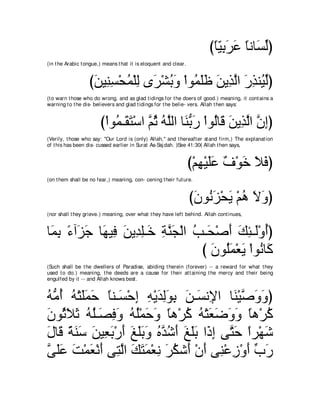 (لِّسَاناً عَرَبِيّاً)
(in the Arabic tongue,) means that it is eloquent and clear.
(لِّيُنذِرَ الَّذِينَ ظَلَمُواْ وَبُشْرَى لِلْمُحْسِنِينَ)
(to warn those who do wrong, and as glad tidings for the doers of good.) meaning, it contains a
warning to the disbelievers and glad tidings for the believers. Allah then says:
(إِنَّ الَّذِينَ قَالُواْ رَبُّنَا اللَّهُ ثُمَّ اسْتَقَـمُواْ)
(Verily, those who say: "Our Lord is (only) Allah," and thereafter stand firm,) The explanation
of this has been discussed earlier in Surat As-Sajdah. )See 41:30( Allah then says,
(فَلاَ خَوْفٌ عَلَيْهِمْ)
(on them shall be no fear,) meaning, concerning their future.
(وَلاَ هُمْ يَحْزَنُونَ)
(nor shall they grieve.) meaning, over what they have left behind. Allah continues,
(أُوْلَـئِكَ أَصْحَـبُ الْجَنَّةِ خَـلِدِينَ فِيهَا جَزَآءً بِمَا
كَانُواْ يَعْمَلُونَ )
(Such shall be the dwellers of Paradise, abiding therein (forever) -- a reward for what they
used to do.) meaning, the deeds are a cause for their attaining the mercy and their being
engulfed by it -- and Allah knows best.
(وَوَصَّيْنَا الإِنسَـنَ بِوَلِدَيْهِ إِحْسَـناً حَمَلَتْهُ أُمُّهُ
كُرْهاً وَوَضَعَتْهُ كُرْهاً وَحَمْلُهُ وَفِصَـلُهُ ثَلاَثُونَ
شَهْراً حَتَّى إِذَا بَلَغَ أَشُدَّهُ وَبَلَغَ أَرْبَعِينَ سَنَةً قَالَ
رَبِّ أَوْزِعْنِى أَنْ أَشكُرَ نِعْمَتَكَ الَّتِى أَنْعَمْتَ عَلَىَّ